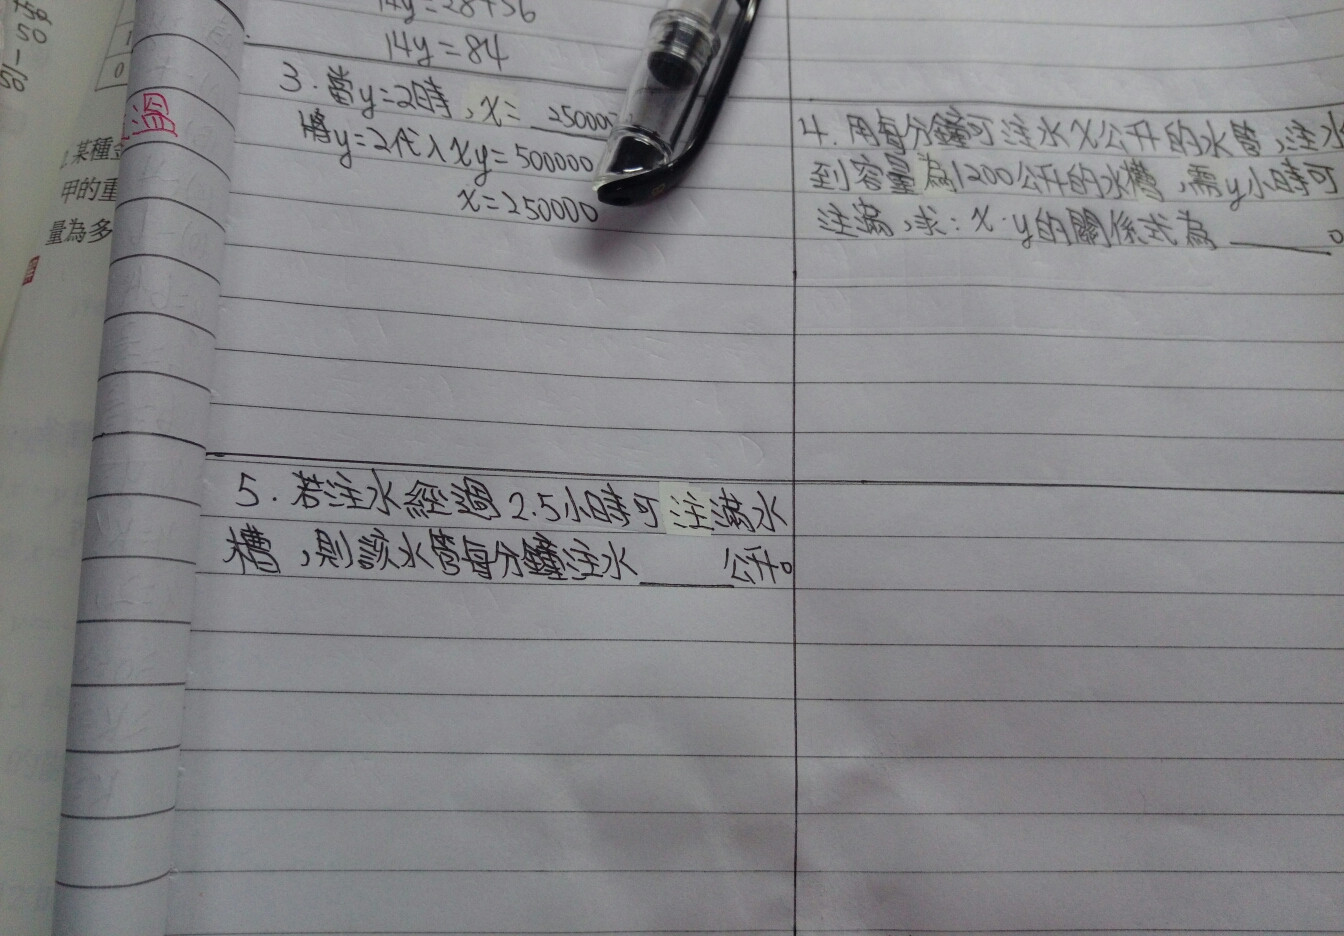 14y=28+56
14y=84
3.當y=2時,x= 250000
將y=2代入xy=500000
x=250000
4.用每分鐘可注水x公升的水管,注水
到容量為1200公升的水槽,需y小時可
注滿,求:x、y的關係式為______。
5.若注水經過2.5小時可注滿水
槽,則該水管每分鐘注水______公升。
溫
某種金
甲的重
量為多